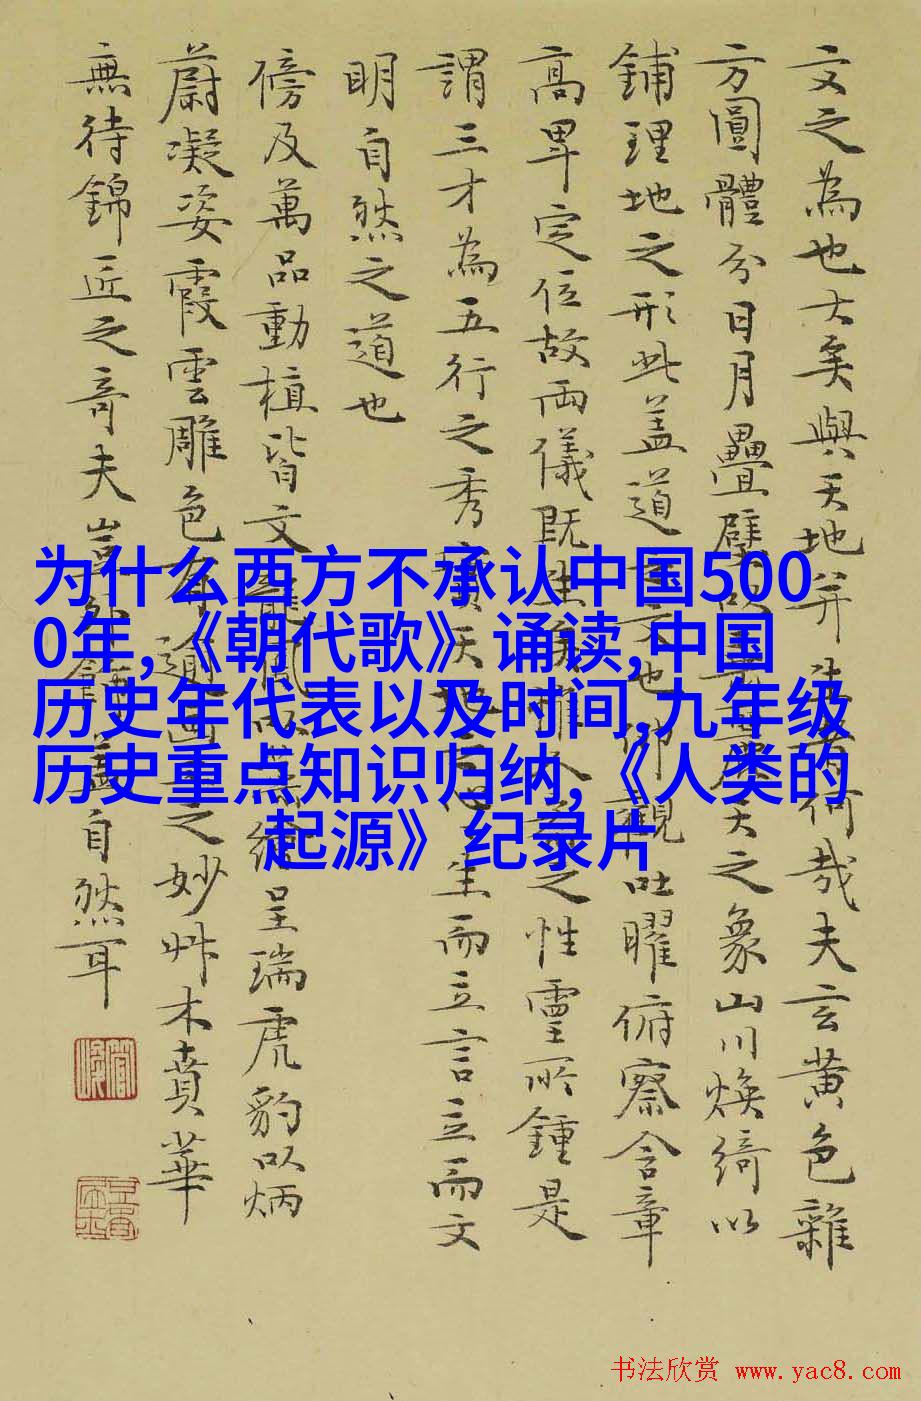 为什么西方不承认中国500
0年,《朝代歌》诵读,中国
历史年代表以及时间,九年级
历史重点知识归纳,《人类的
起源》纪录片
文之為也大矣與天地并何哉夫玄黄色雜
方圓體分日月疊璧以天之象山川煥綺以
鋪理地之形此盖道文也仰觀吐曜俯察含章
高卑定位故兩儀既生惟人之性靈所鍾是
謂三才為五行之秀實天地生而立言立而文
明自然之道也
傍及萬品動植皆文龍鳳以繪呈瑞虎豹以炳
蔚凝姿霞雲雕色有逾之妙艸木賁華
無待錦匠之奇夫豈外飾蓋自然耳
书法欣赏 www.yac8.com